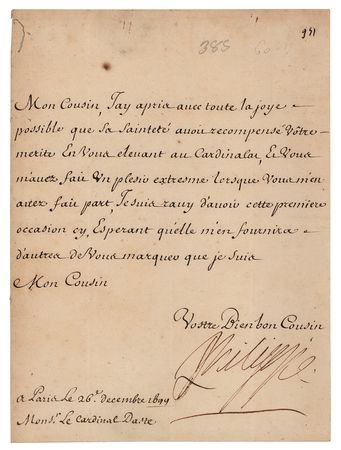 951
385
Mon Cousin, J'ay apris avec toute la joye
possible que Sa Sainteté avoit recompensé Vôtre
merite En Vous elevant au Cardinalat, Et Vous
m'avez fait Un plesir extresme lorsque Vous m'en
avez fait part, Je suis ravy d'avoir cette premiere
occasion cy, Esperant qu'elle m'en fournira
d'autres de Vous marquer que je suis
Mon Cousin
Vostre bien bon Cousin
Philippe
A Paris Le 26e. decembre 1699
Monsr. Le Cardinal Daste